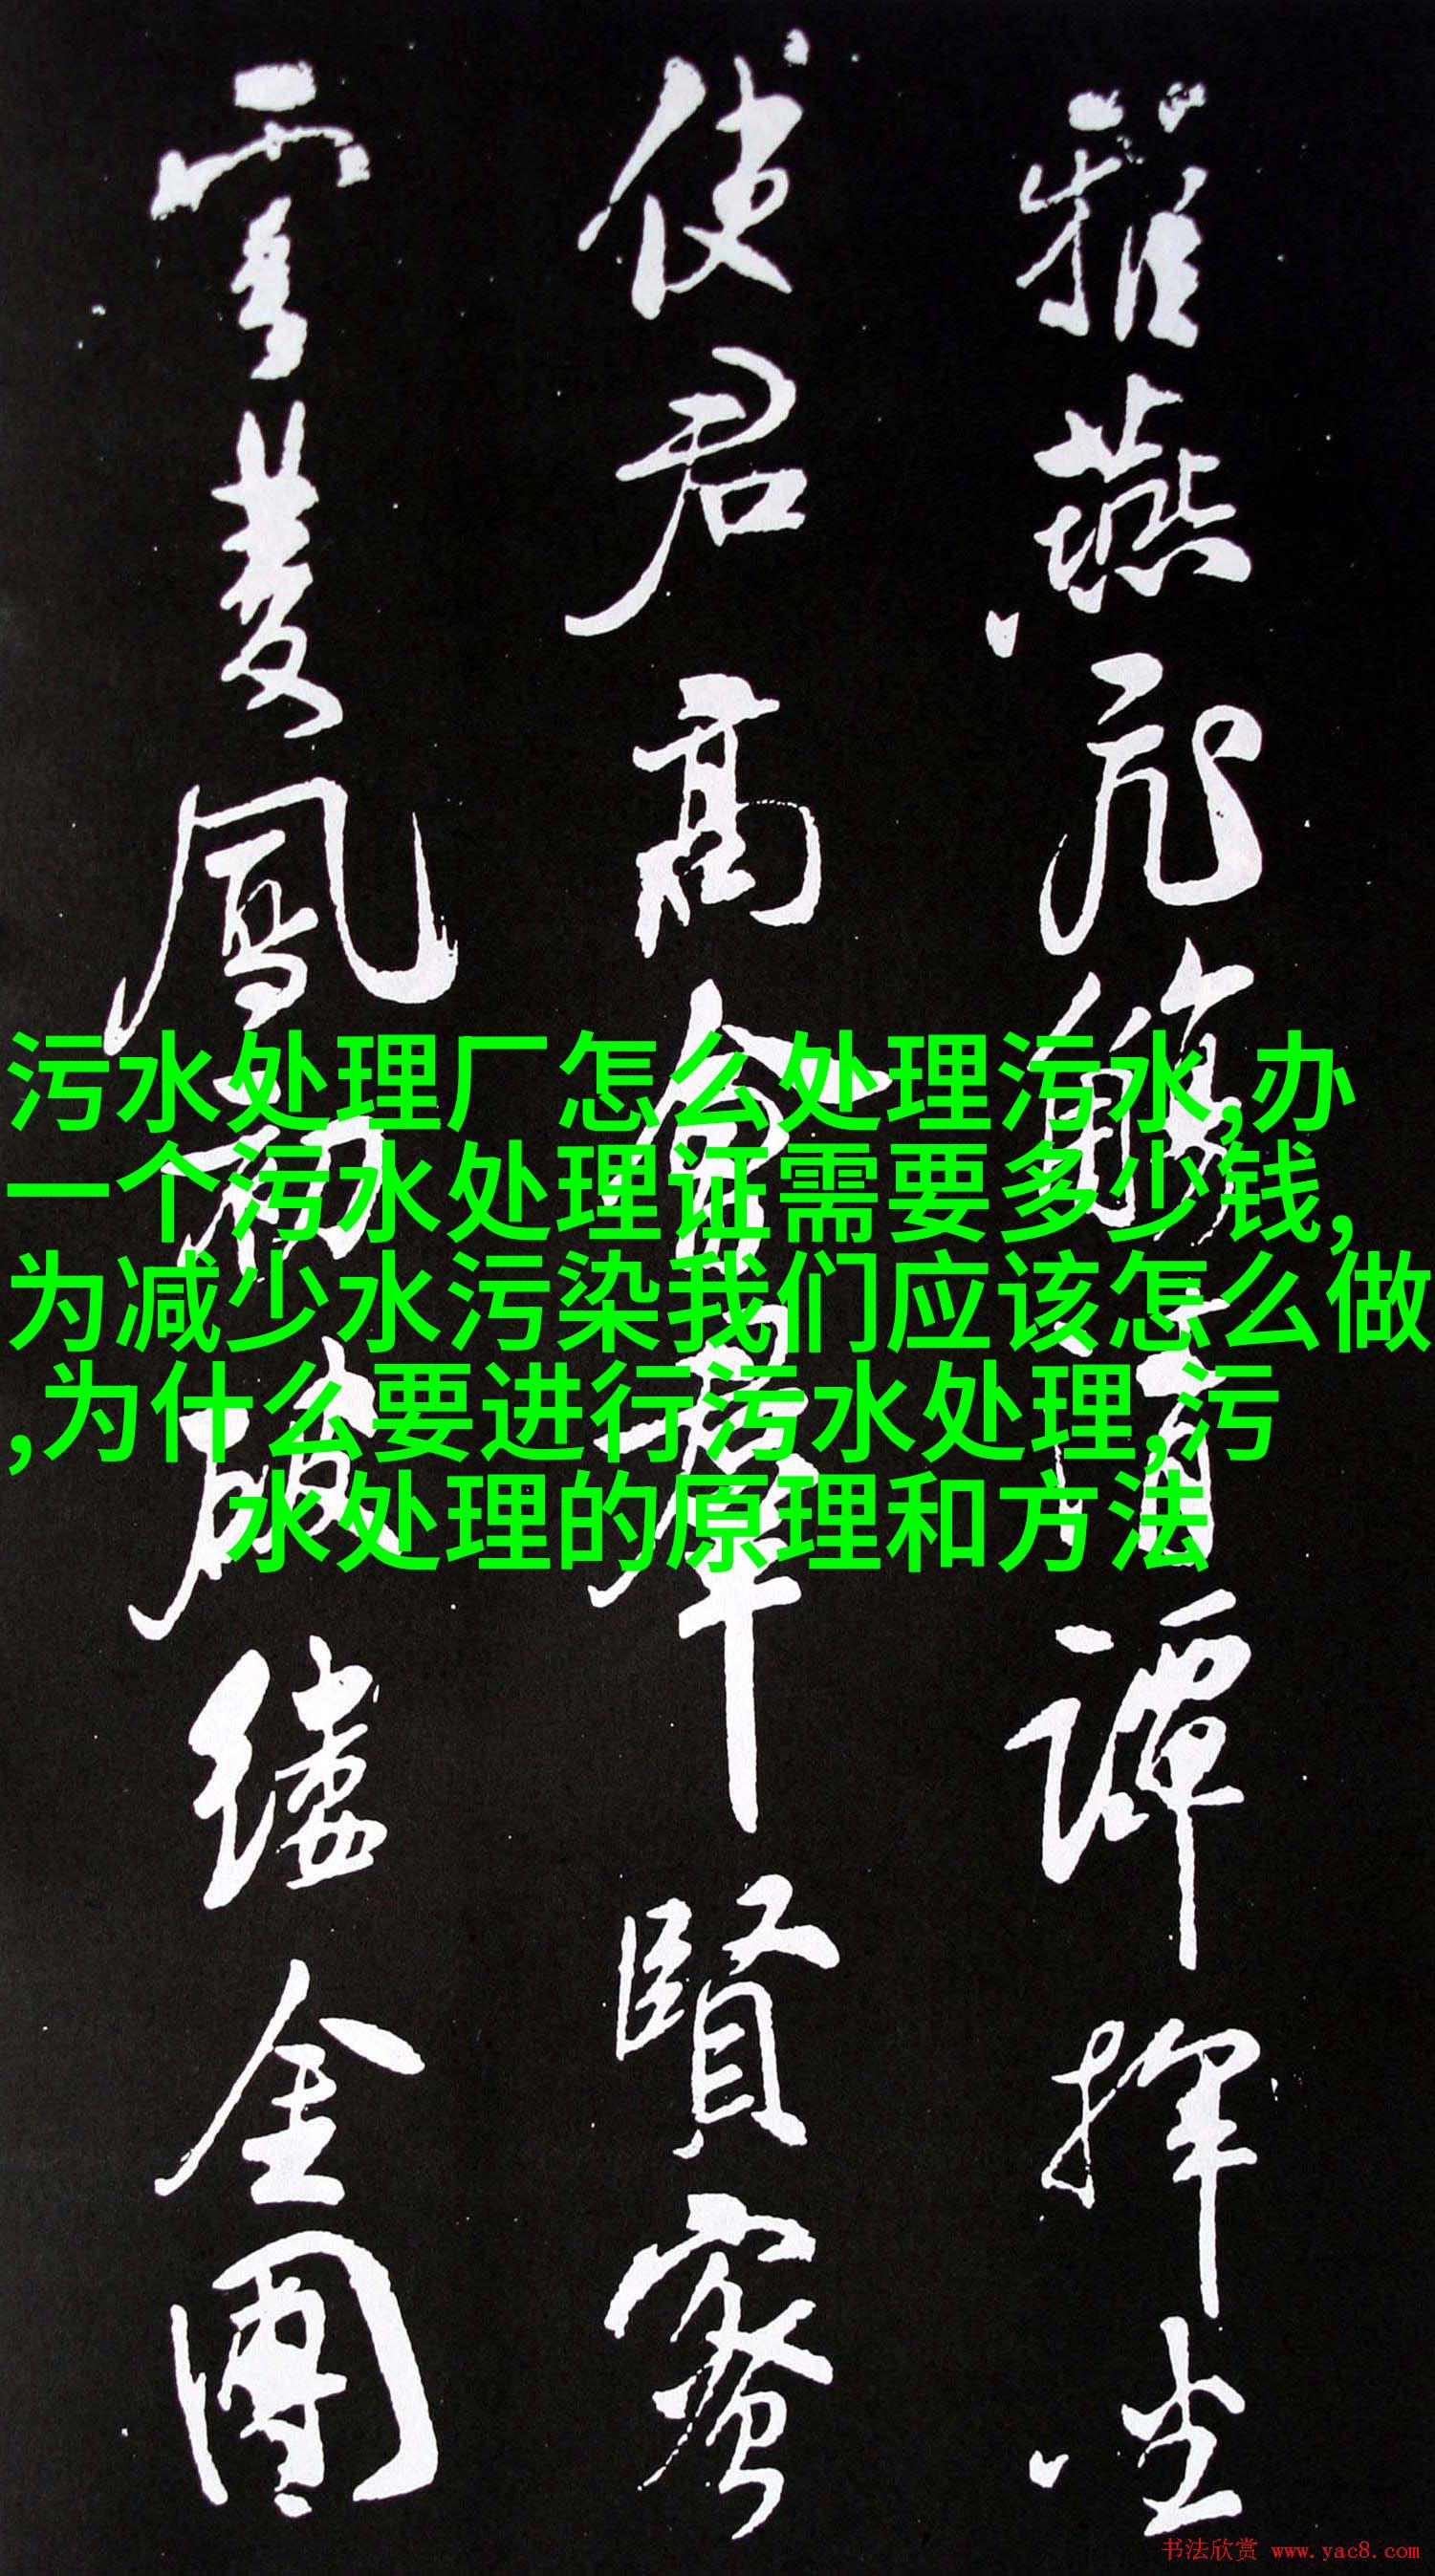 雅燕飛觴清譚揮坐
使君高會羣賢密
雲鳳初破縷金團
污水处理厂怎么处理污水,办
一个污水处理证需要多少钱,
为减少水污染我们应该怎么做
,为什么要进行污水处理,污
水处理的原理和方法
书法欣赏 www.yac8.com